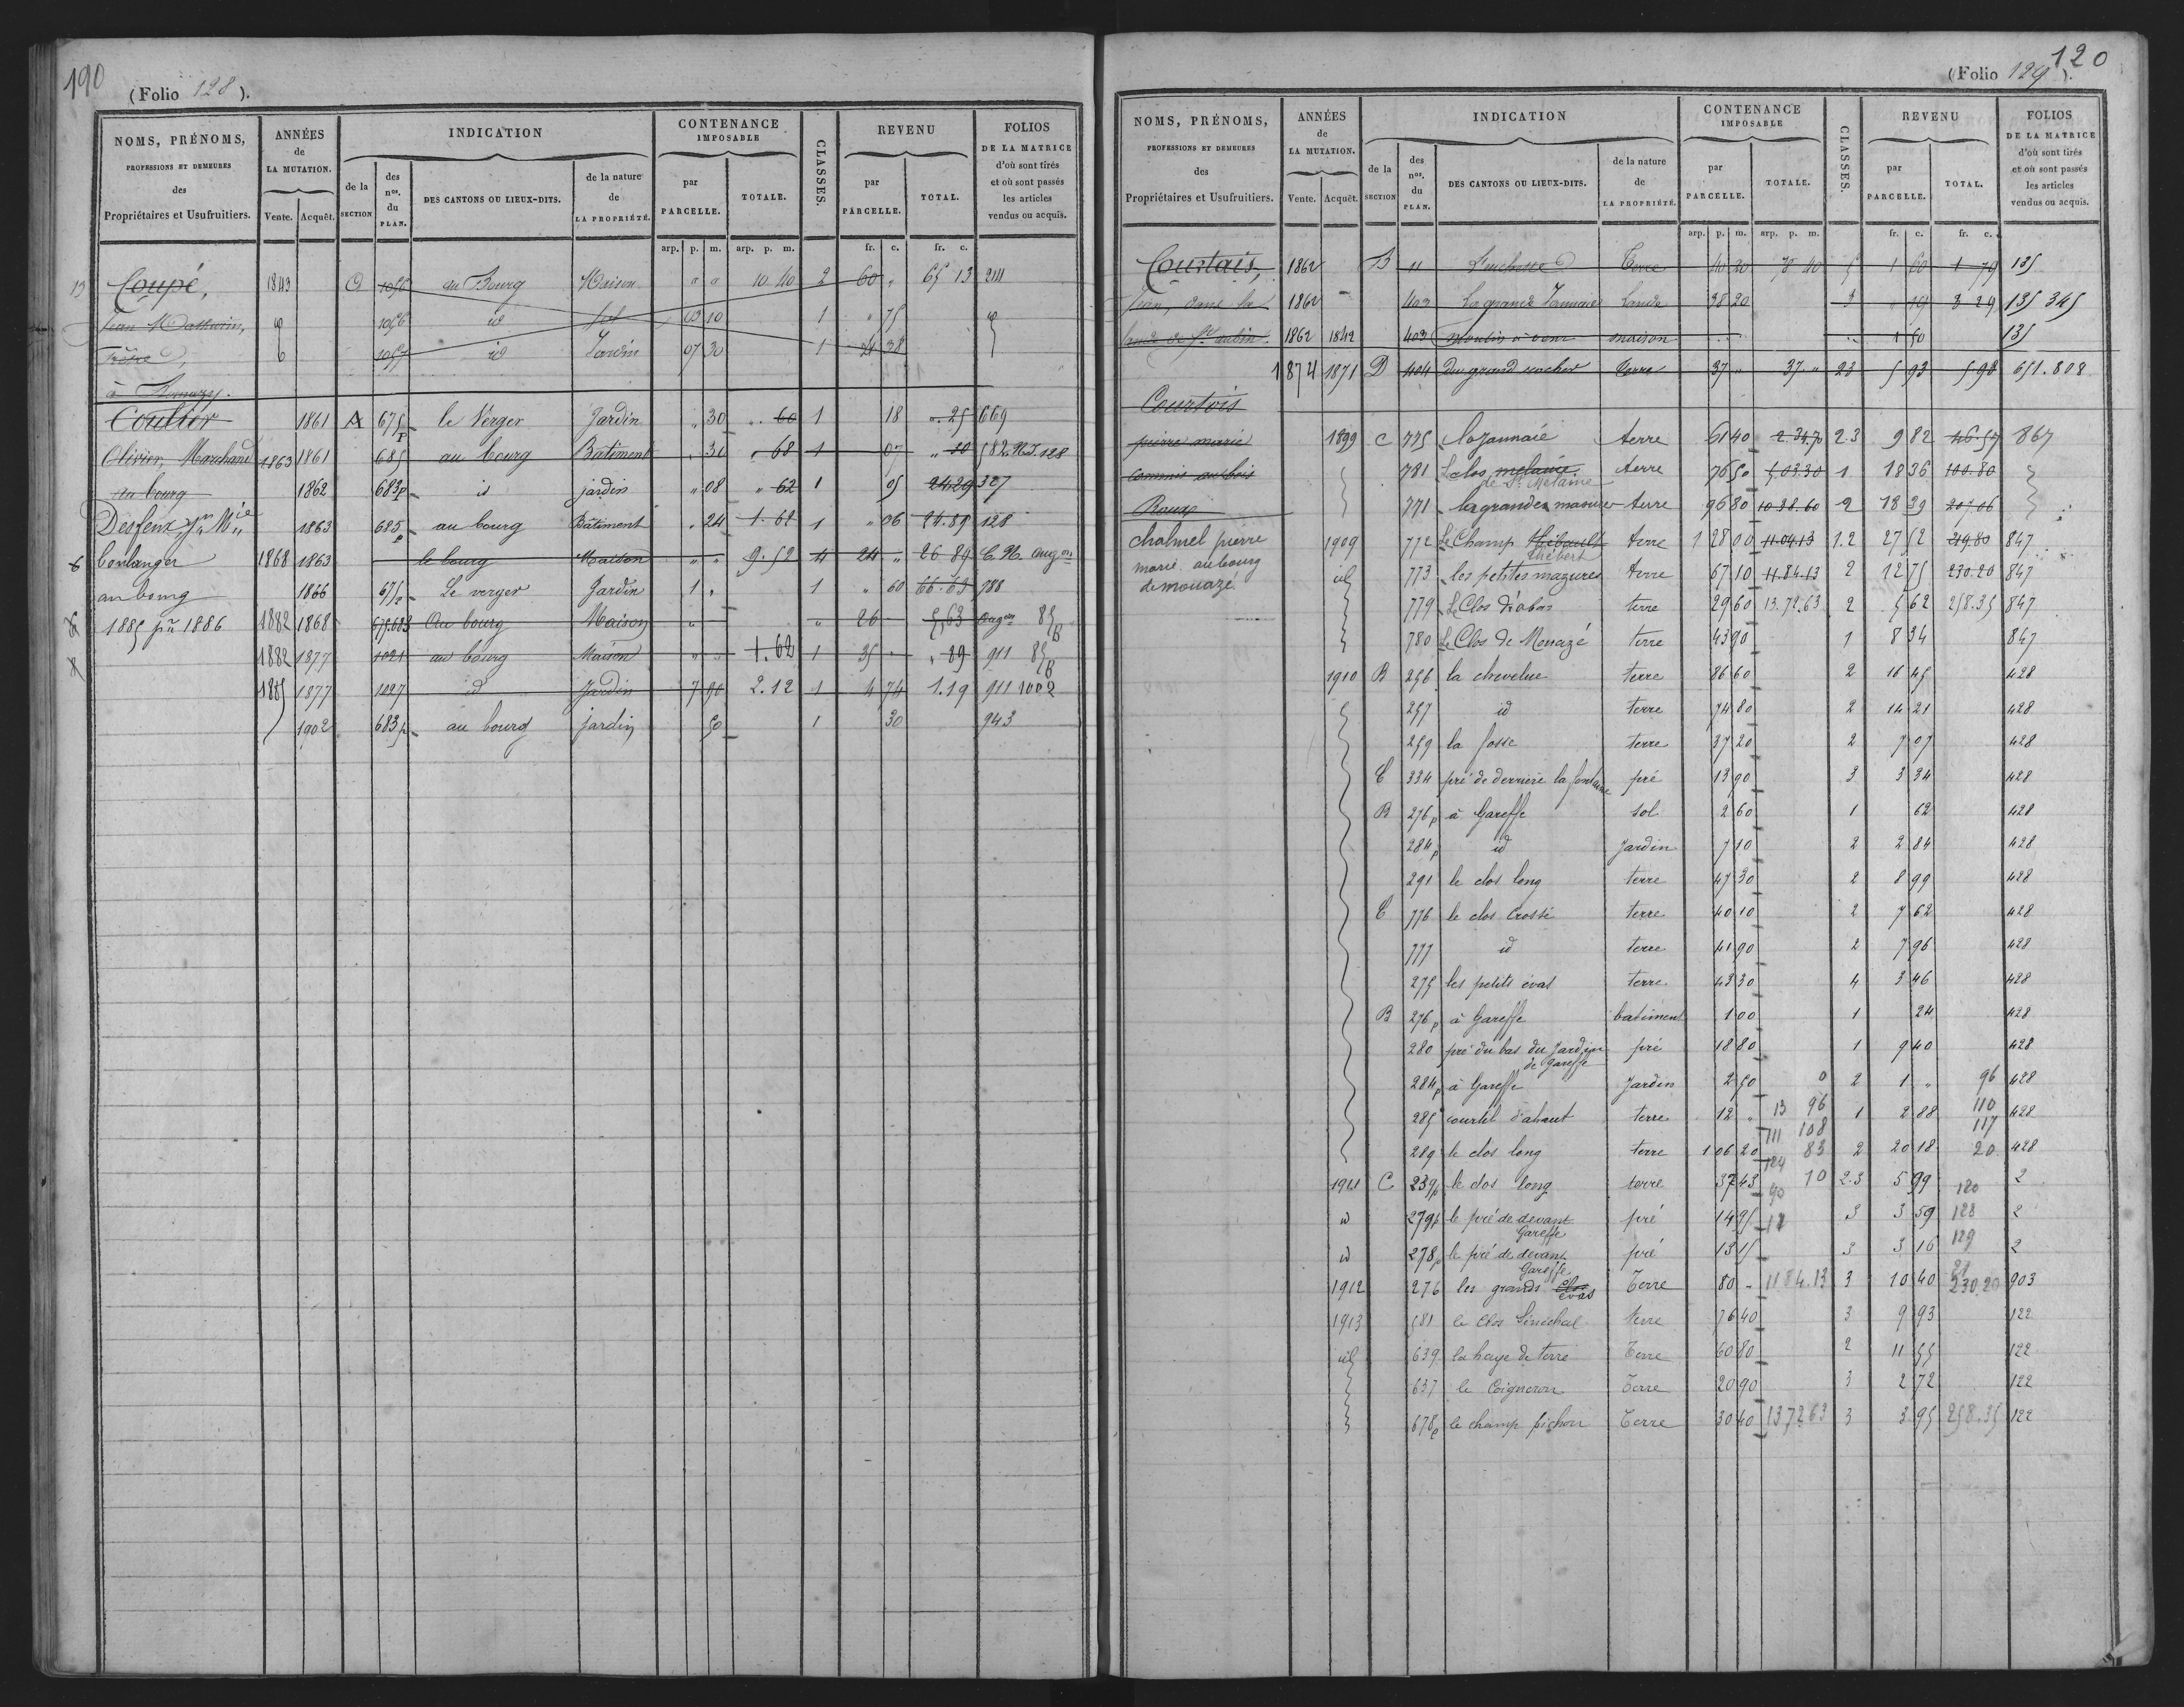 190
(Folio 128).
NOMS, PRÉNOMS,
PROFESSIONS ET DEMEURES
des
Propriétaires et Usufruitiers.
ANNÉES
de
LA MUTATION.
Vente. Acquêt.
INDICATION
de la
SECTION
des
nos.
du
PLAN.
DES CANTONS OU LIEUX-DITS.
de la nature
de
LA PROPRIÉTÉ.
CONTENANCE
IMPOSABLE
par
PARCELLE.
TOTALE.
CLASSES.
REVENU
par
PARCELLE.
TOTAL.
FOLIOS
DE LA MATRICE
d'où sont tirés
et où sont passés
les articles
vendus ou acquis.
arp. p. m. arp. p. m. fr. c. fr. c.
13 Coupé, 1843 au Bourg Maison " " 10 40 2 60 " 65 13
Jean Mathurin, 1056 id Sol 03 10 1 " 75
1057 id Jardin 07 30 1 38
Coultier 1861 A 675p le Verger Jardin " 30 " 60 1 18 " 25 669
Olivier, Marchand 1863 1861 685 au bourg Bâtiment " 30 " 68 1 07 128
au bourg 1862 683p id jardin " 08 " 62 1 05 24.29 327
1863 685p au bourg Bâtiment " 24 1.62 1 " 06 24.89 128
6 boulanger 1868 1863 le bourg Maison " " 9.52 4 24 " 26 89
au bourg 1866 Le verger Jardin 1 " 1 " 60 788
1885 1886 1882 1868 675.683 Au bourg Maison " " 26 5,63 85
1882 1877 1021 au bourg Maison " " 1.62 1 35 " " 89 911 85
1885 1877 1027 id Jardin 7 90 2.12 1 4 74 1.19 911 1002
1902 683p au bourg jardin 50 1 30 943
120
(Folio 129).
NOMS, PRÉNOMS,
PROFESSIONS ET DEMEURES
des
Propriétaires et Usufruitiers.
ANNÉES
de
LA MUTATION.
Vente. Acquêt.
INDICATION
de la
SECTION
des
nos.
du
PLAN.
DES CANTONS OU LIEUX-DITS.
de la nature
de
LA PROPRIÉTÉ.
CONTENANCE
IMPOSABLE
par
PARCELLE.
TOTALE.
CLASSES.
REVENU
par
PARCELLE.
TOTAL.
FOLIOS
DE LA MATRICE
d'où sont tirés
et où sont passés
les articles
vendus ou acquis.
arp. p. m. arp. p. m. fr. c. fr. c.
Courtais, 1862 B 11 Terre 40 20 78 40 5 1 60 1 79 135
Jean, dans la 1862 La grande Jannaie Lande 38 20 3 " 19 3 29 135 345
lande de St aubin. 1862 1842 403 moulin à vent maison 1 50 135
1874 1871 D 404 Du grand rocher terre 37 " 37 " 23 5 93 5 98 651.808
Courtois
pierre marie 1899 C 775 la Jannaie terre 61 40 2.34.70 2.3 9 82 46.57 867
commis au bois 781 Le clos melaine terre 76 50 5.03.30 1 18 36 100.80
de St Melaine
Roux 771 la grande masure terre 96 80 10.38.60 2 18 39 207.06
chalmel pierre 1909 772 Le Champ Thébault terre 1 28 00 11.04.13 1.2 27 52 219.80 847
Thébert
marié au bourg id 773 les petites mazures terre 67 10 11.84.13 2 12 75 230.20 847
de mouazé.
779 Le Clos d'abas terre 29 60 13.72.63 2 5 62 258.35 847
780 Le Clos de Mouazé terre 43 90 1 8 34 847
1910 B 256 la chevelue terre 86 60 2 16 45 428
257 id terre 74 80 2 14 21 428
259 la fosse terre 37 20 2 7 07 428
C 334 pré de derrière la fontaine pré 13 90 3 3 34 428
B 276p à Gareffe sol 2 60 1 62 428
284p id Jardin 7 10 2 2 84 428
291 le clos long terre 47 30 2 8 99 428
C 776 le clos Crossé terre 40 10 2 7 62 428
777 id terre 41 90 2 7 96 428
275 les petits évas terre 43 30 4 3 46 428
B 276p à Gareffe batiment 1 00 1 24 428
280 pré du bas du Jardin pré 18 80 1 9 40 428
de Gareffe
284p à Gareffe Jardin 2 50 0 2 1 " 96 428
285 courtil d'ahaut terre 12 " 13 96 1 2 88 110 428
111 108 117
289 le clos long terre 1 06 20 83 2 20 18 20 428
124
1911 C 239p le clos long terre 37 43 10 2.3 5 99 120 2
90
id 279p le pré de devant pré 14 95 3 3 59 128 2
Gareffe
id 278p le pré de devant pré 13 15 3 3 16 129 2
Gareffe
1912 276 les grands clos Terre 80 - 1184.13 3 10 40 230.20 903
évas
1913 581 le Clos Sénéchal terre 76 40 3 9 93 122
id 639 la haye de terre Terre 60 80 2 11 55 122
637 le Coigneron Terre 20 90 3 2 72 122
678p le champ pichon Terre 30 40 13.72.63 3 3 95 258.35 122